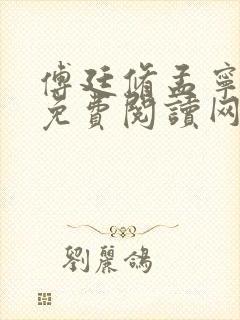 傅廷脩孟寧
免費閱讀网
劉麗鴿